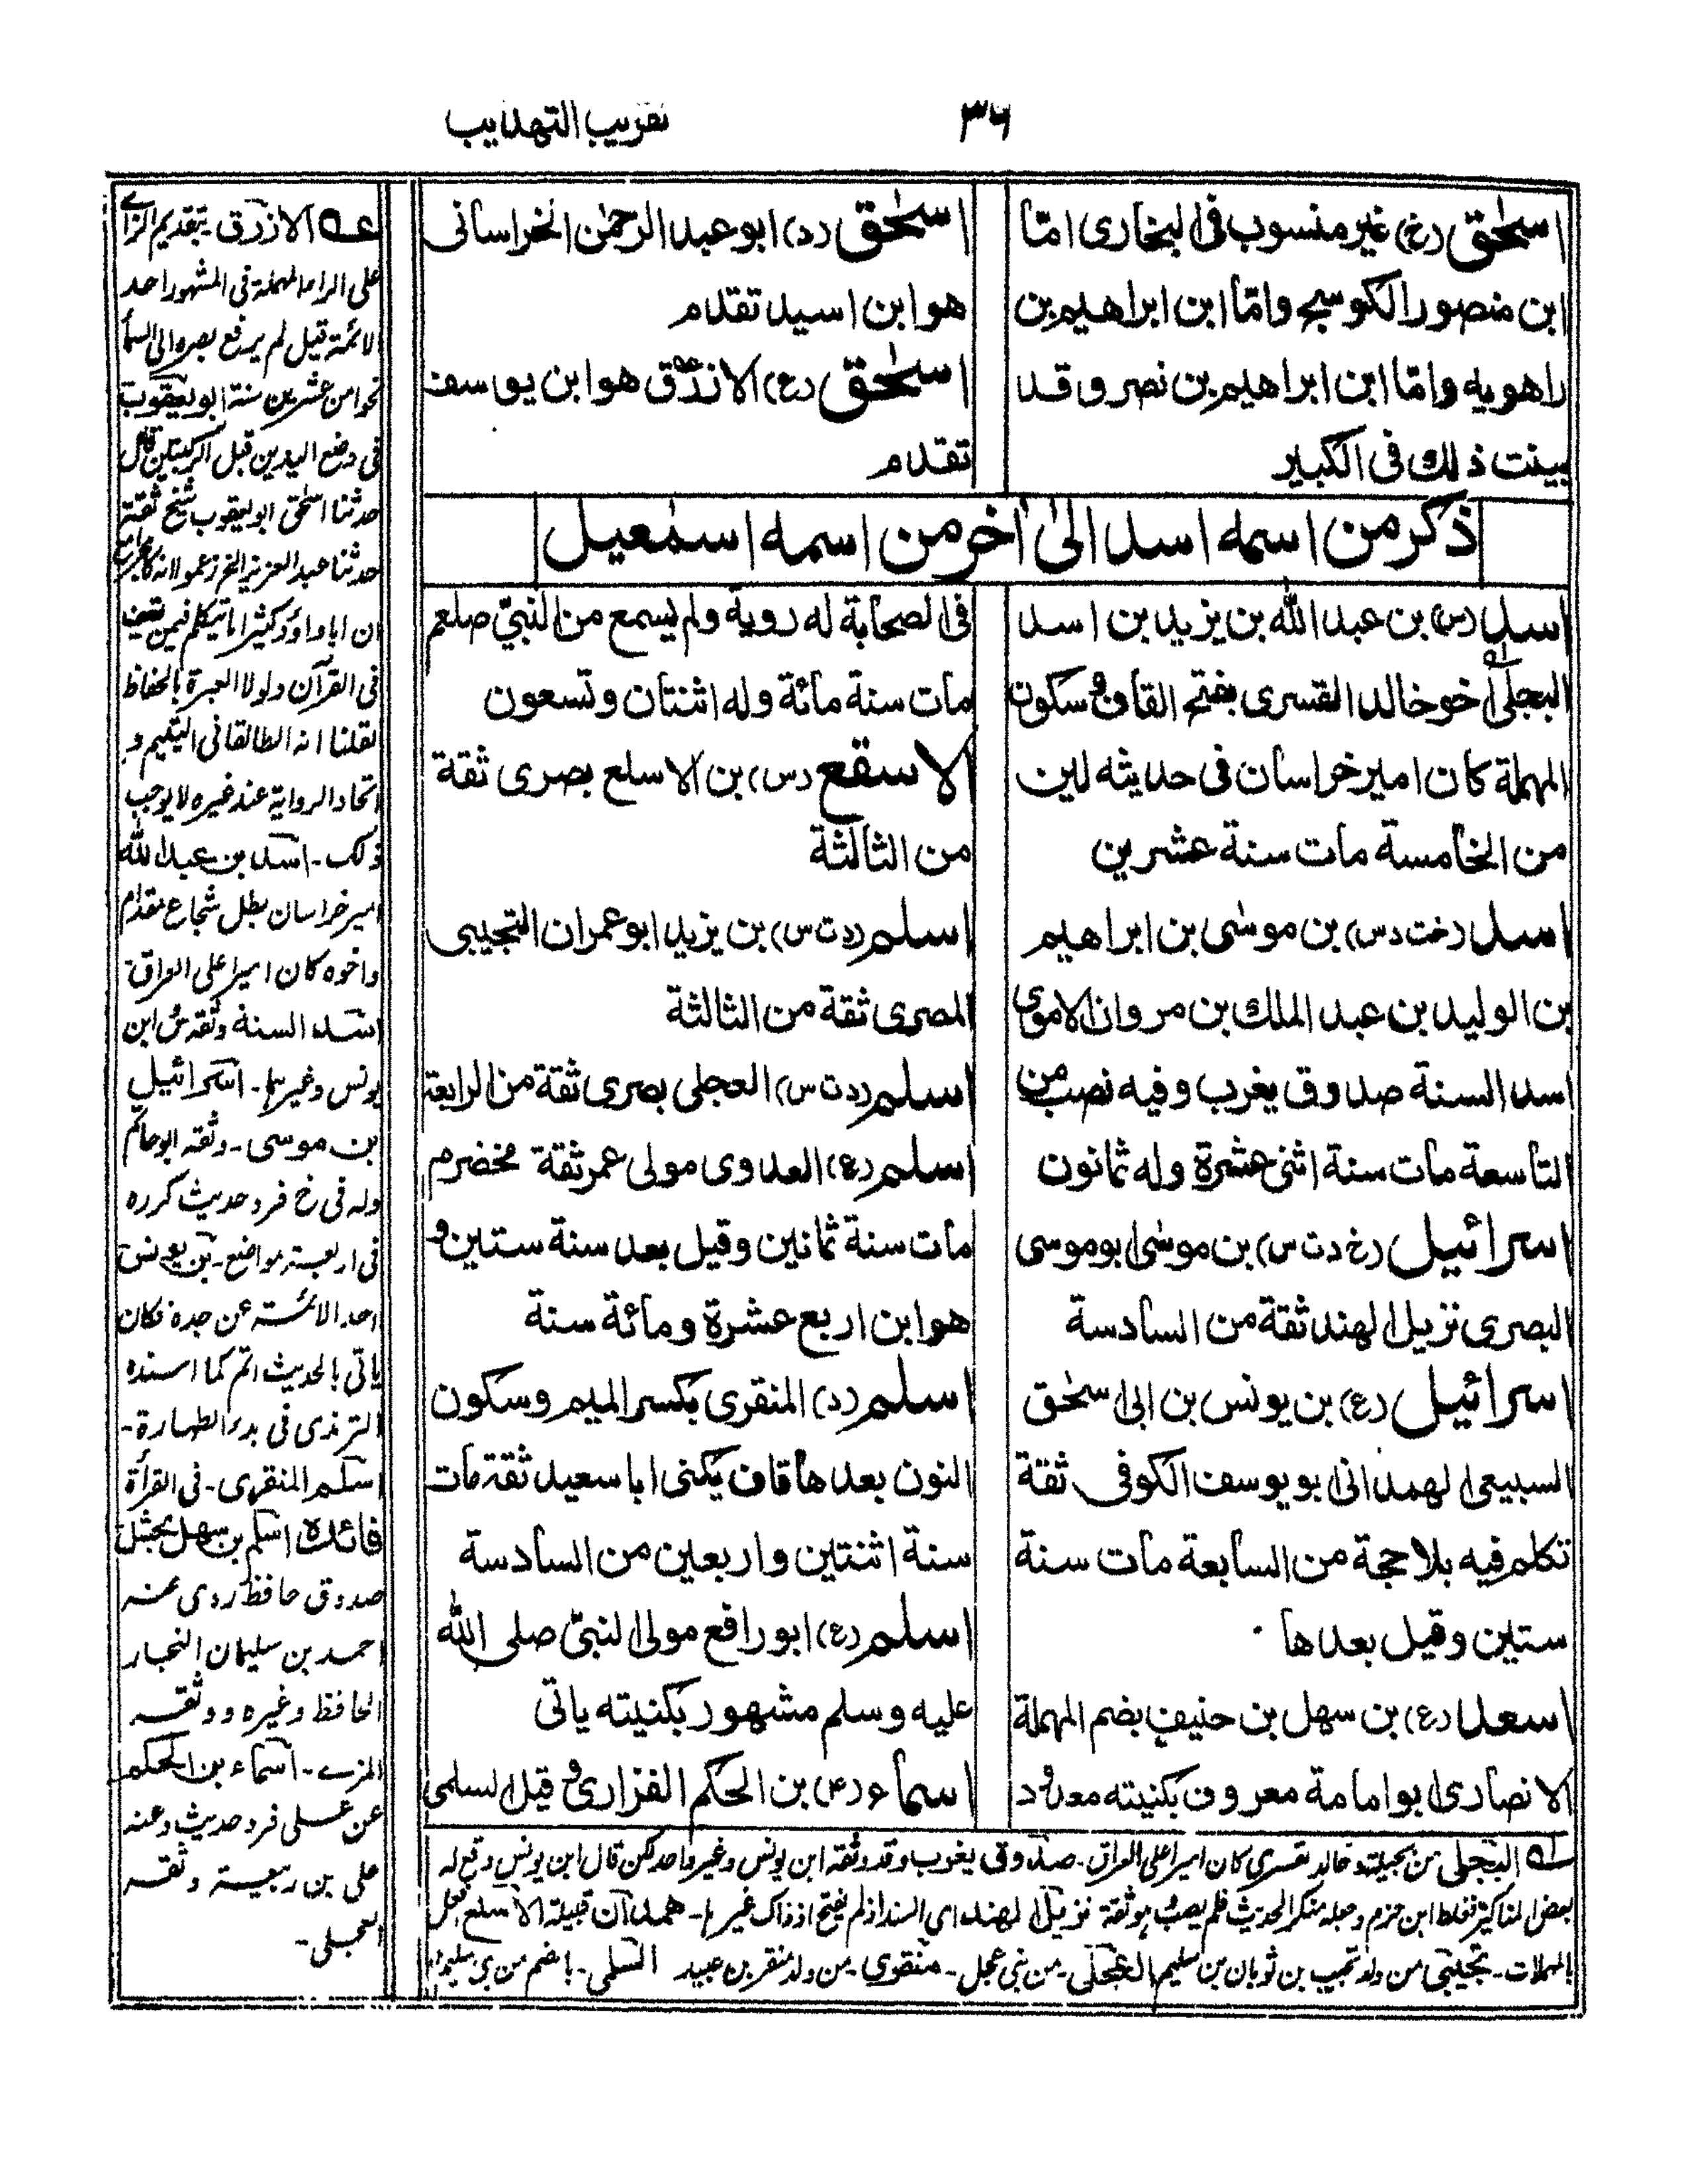 ٣٦
تقريب التهذيب
اسحٰق (خ) غير منسوب فى البخارى امّا
ابن منصور الكوسج وامّا ابن ابراهيم بن
راهويه وامّا ابن ابراهيم بن نصر وقد
بينت ذلك فى الكبير
اسحٰق (د) ابو عبد الرحمٰن الخراسانى
هو ابن اسيد تقدم
اسحٰق (ع) الازرق هو ابن يوسف
تقدم
ذكر من اسمه اسد الىٰ اٰخر من اسمه اسمٰعيل
اسد (س) بن عبد الله بن يزيد بن اسد
البجلى اخو خالد القسرى بفتح القاف وسكون
المهملة كان امير خراسان فى حديثه لين
من الخامسة مات سنة عشرين
اسد (خت د س) بن موسٰى بن ابراهيم
بن الوليد بن عبد الملك بن مروان الاموى
اسد السنة صدوق يغرب وفيه نصب من
التاسعة مات سنة اثنى عشرة وله ثمانون
اسرائيل (خ د ت س) بن موسٰى ابو موسى
البصرى نزيل الهند ثقة من السادسة
اسرائيل (ع) بن يونس بن ابى اسحٰق
السبيعى الهمدانى ابو يوسف الكوفى ثقة
تكلم فيه بلا حجة من السابعة مات سنة
ستين وقيل بعدها
اسعد (ع) بن سهل بن حنيف بضم المهملة
الانصارى ابو امامة معروف بكنيته معدود
فى الصحابة له روية ولم يسمع من النبىّ صلعم
مات سنة مائة وله اثنتان وتسعون
الاسقع (س) بن الاسلع بصرى ثقة
من الثالثة
اسلم (د ت س) بن يزيد ابو عمران التجيبى
المصرى ثقة من الثالثة
اسلم (د ت س) العجلى بصرى ثقة من الرابعة
اسلم (ع) العدوى مولى عمر ثقة مخضرم
مات سنة ثمانين وقيل بعد سنة ستين و
هو ابن اربع عشرة ومائة سنة
اسلم (د) المنقرى بكسر الميم وسكون
النون بعدها قاف يكنى ابا سعيد ثقة مات
سنة اثنتين واربعين من السادسة
اسلم (ع) ابو رافع مولى النبىّ صلى الله
عليه وسلم مشهور بكنيته ياتى
اسماء (۴) بن الحكم الفزارى وقيل السلمى
عه الازرق بتقديم الزاے
على الراء المهملة فى المشهور احد
الائمة قيل لم يرفع بصره الى السمأ
نحوا من عشرين سنة ابو يعقوب
فى وضع اليدين قبل الركبتين قال
حدثنا اسحٰق ابو يعقوب شيخ ثقة
حدثنا عبد العزيز الخ
ان ابا داؤد كثيرا ما يتكلم فيمن
فى القرآن ولولا العبرة بالحفاظ
لقلنا انه الطالقانى التيليم و
اتحاد الرواية عند غيره لا يوجب
ذلك - اسد بن عبد الله
امير خراسان بطل شجاع مقدام
واخوه كان اميرا على العراق
اسد السنة وثقه س ابن
يونس وغيرہما - اسرائيل
بن موسى - وثقه ابو حاتم
وله فى خ فرد حديث كرره
فى اربعة مواضع - بن يونس
احد الائمة عن جده فكان
ياتى بالحديث اتم كما اسنده
الترمذى فى بدء الطهارة -
اسلم المنقرى - فى القرأة
فائده اسلم بن سهل بحشل
صدوق حافظ روى عنه
احمد بن سليمان النجار
الحافظ وغيره ووثقه
المزے - اسماء بن الحكم
عن على فرد حديث وعنه
على بن ربيعة وثقه
العجلى -
له البجلى من بجيلة وخالد قسرى كان اميرا على العراق - صدوق يغرب وقد وثقه ابن يونس وغير واحد لكن قال ابن يونس وقع له
بعض المناكير فغلط ابن حزم وجعله منكر الحديث فلم يصب هو ثقة نزيل الهند اى السند اذ لم يفتح اذ ذاك غيرها - همدان قبيلة الاسلع
بالمهملات - تجيبى من ولد تجيب بن ثوبان بن سليم العجلى - من بنى عجل - منقرى - من ولد منقر بن عبيد السلمى - بالضم من بنى سليم